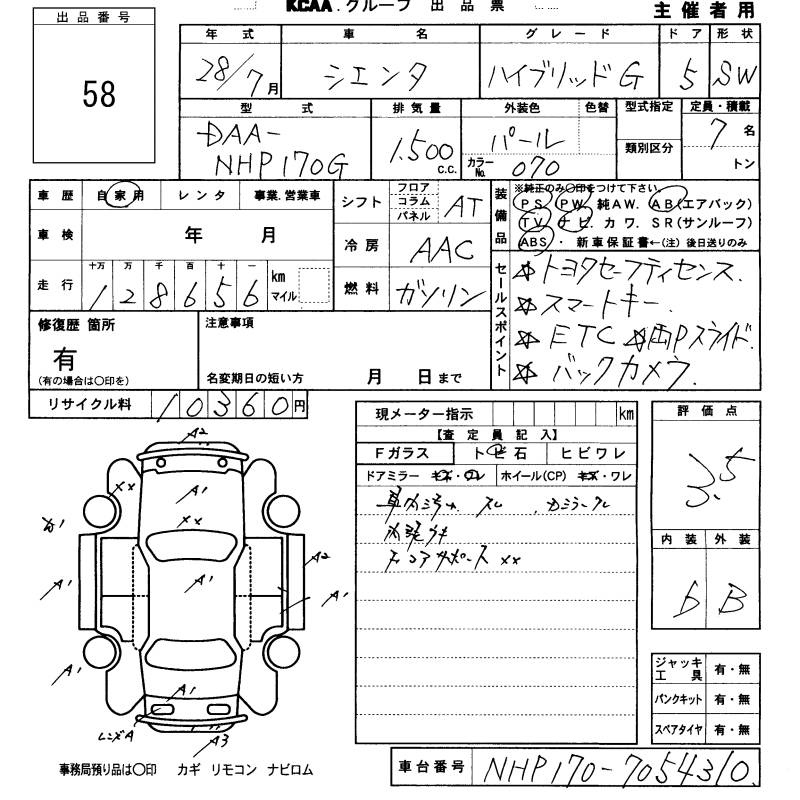 KCAA.グループ 出品票
主催者用
出品番号
58
年式 車名 グレード ドア 形状
28/7月 シエンタ ハイブリッドG 5 SW
型式 排気量 外装色 色替 型式指定 定員・積載
DAA-NHP170G 1.500 C.C. パール 7名
カラーNo. 070 類別区分 トン
車歴 自家用 レンタ 事業.営業車
車検 年 月
走行 十万 万 千 百 十 一 km マイル
1 2 8 6 5 6
シフト フロア コラム パネル AT
冷房 AAC
燃料 ガソリン
装備品
※純正のみ〇印をつけて下さい。
PS PW 純AW. AB(エアバック)
TV ナビ. カワ. SR(サンルーフ)
ABS ・ 新車保証書←(注) 後日送りのみ
セールスポイント
☆トヨタセーフティセンス.
☆スマートキー.
☆ETC ☆両Pスライド.
☆バックカメラ.
修復歴 箇所
有
(有の場合は〇印を)
注意事項
名変期日の短い方 月 日まで
リサイクル料 10360円
現メーター指示 km
【査定員記入】
Fガラス トビ石 ヒビワレ
ドアミラー キズ・ワレ ホイール(CP) キズ・ワレ
車内
××
評価点
3.5
内装 外装
B
A2
××
A'
××
A2
A'
A'
A'
A'
A'
レンズA
A3
ジャッキ工具 有・無
パンクキット 有・無
スペアタイヤ 有・無
事務局預り品は〇印 カギ リモコン ナビロム
車台番号 NHP170-7054310.